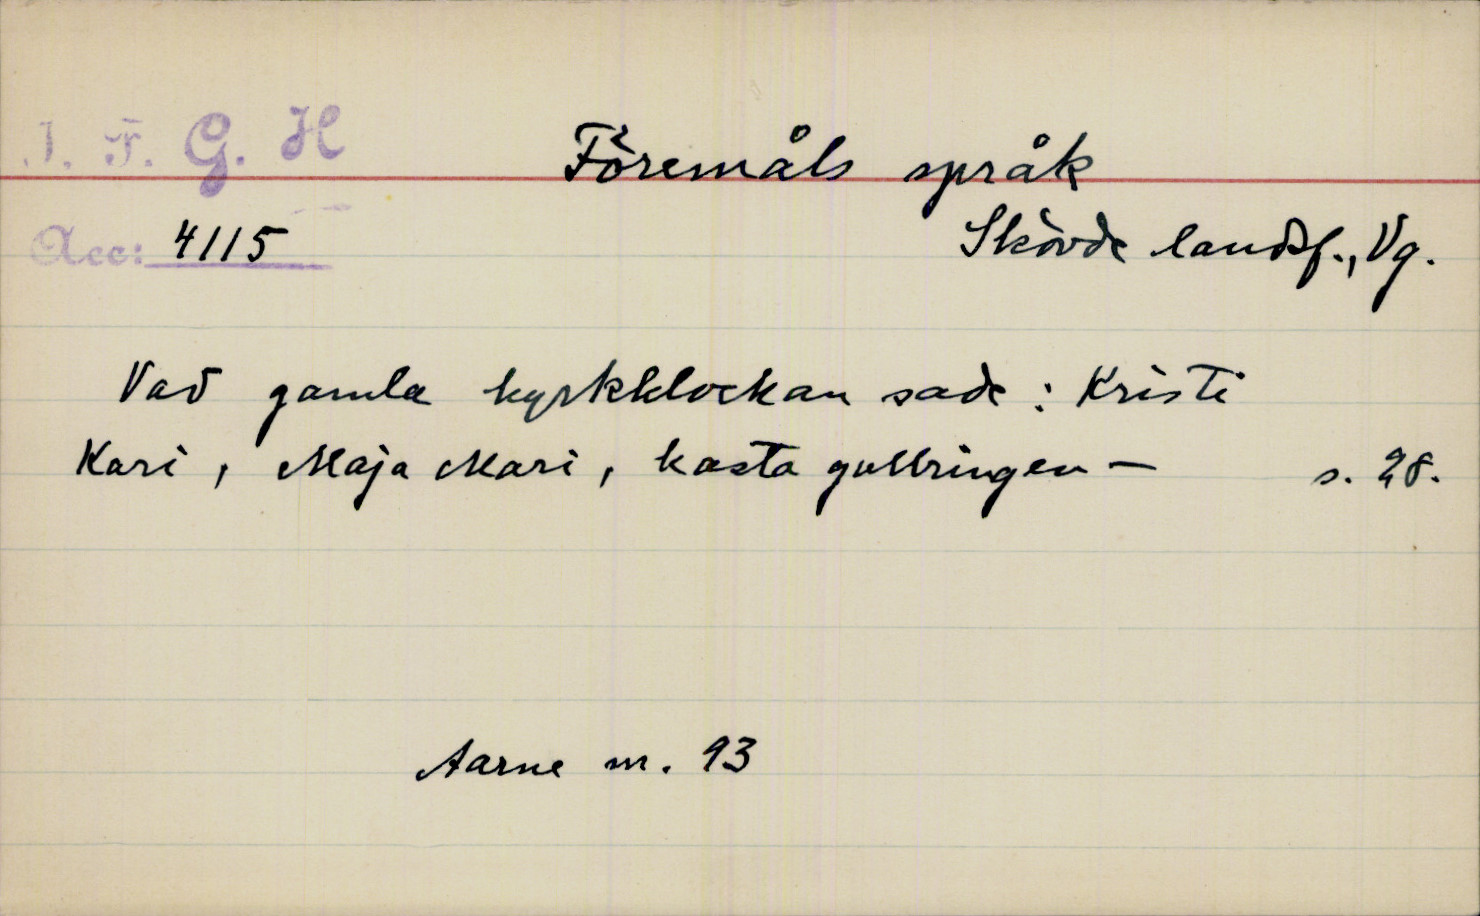 I. F. G. H
Föremåls språk
Acc: 4115
Skövde landsf., Vg.
Vad gamla kyrkklockan sade: Kristi
Kari, Maja Mari, kasta gullringen — s. 28.
Aarne nr. 93